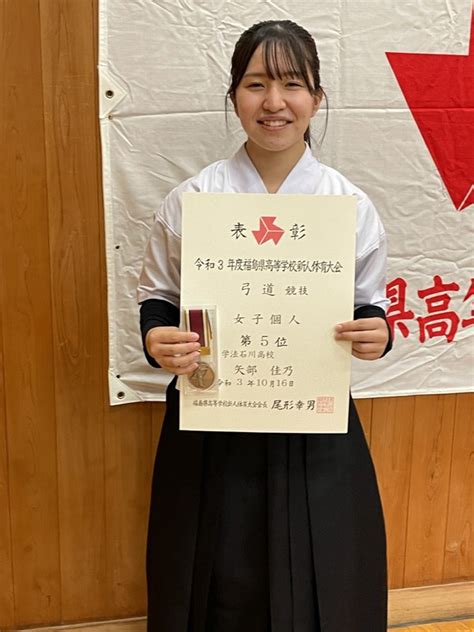 表 彰
令和3年度福島県高等学校新人体育大会
弓道 競技
女子個人
第5位
学法石川高校
矢部 佳乃
令和3年10月16日
福島県高等学校新人体育大会会長 尾形幸男
県高等